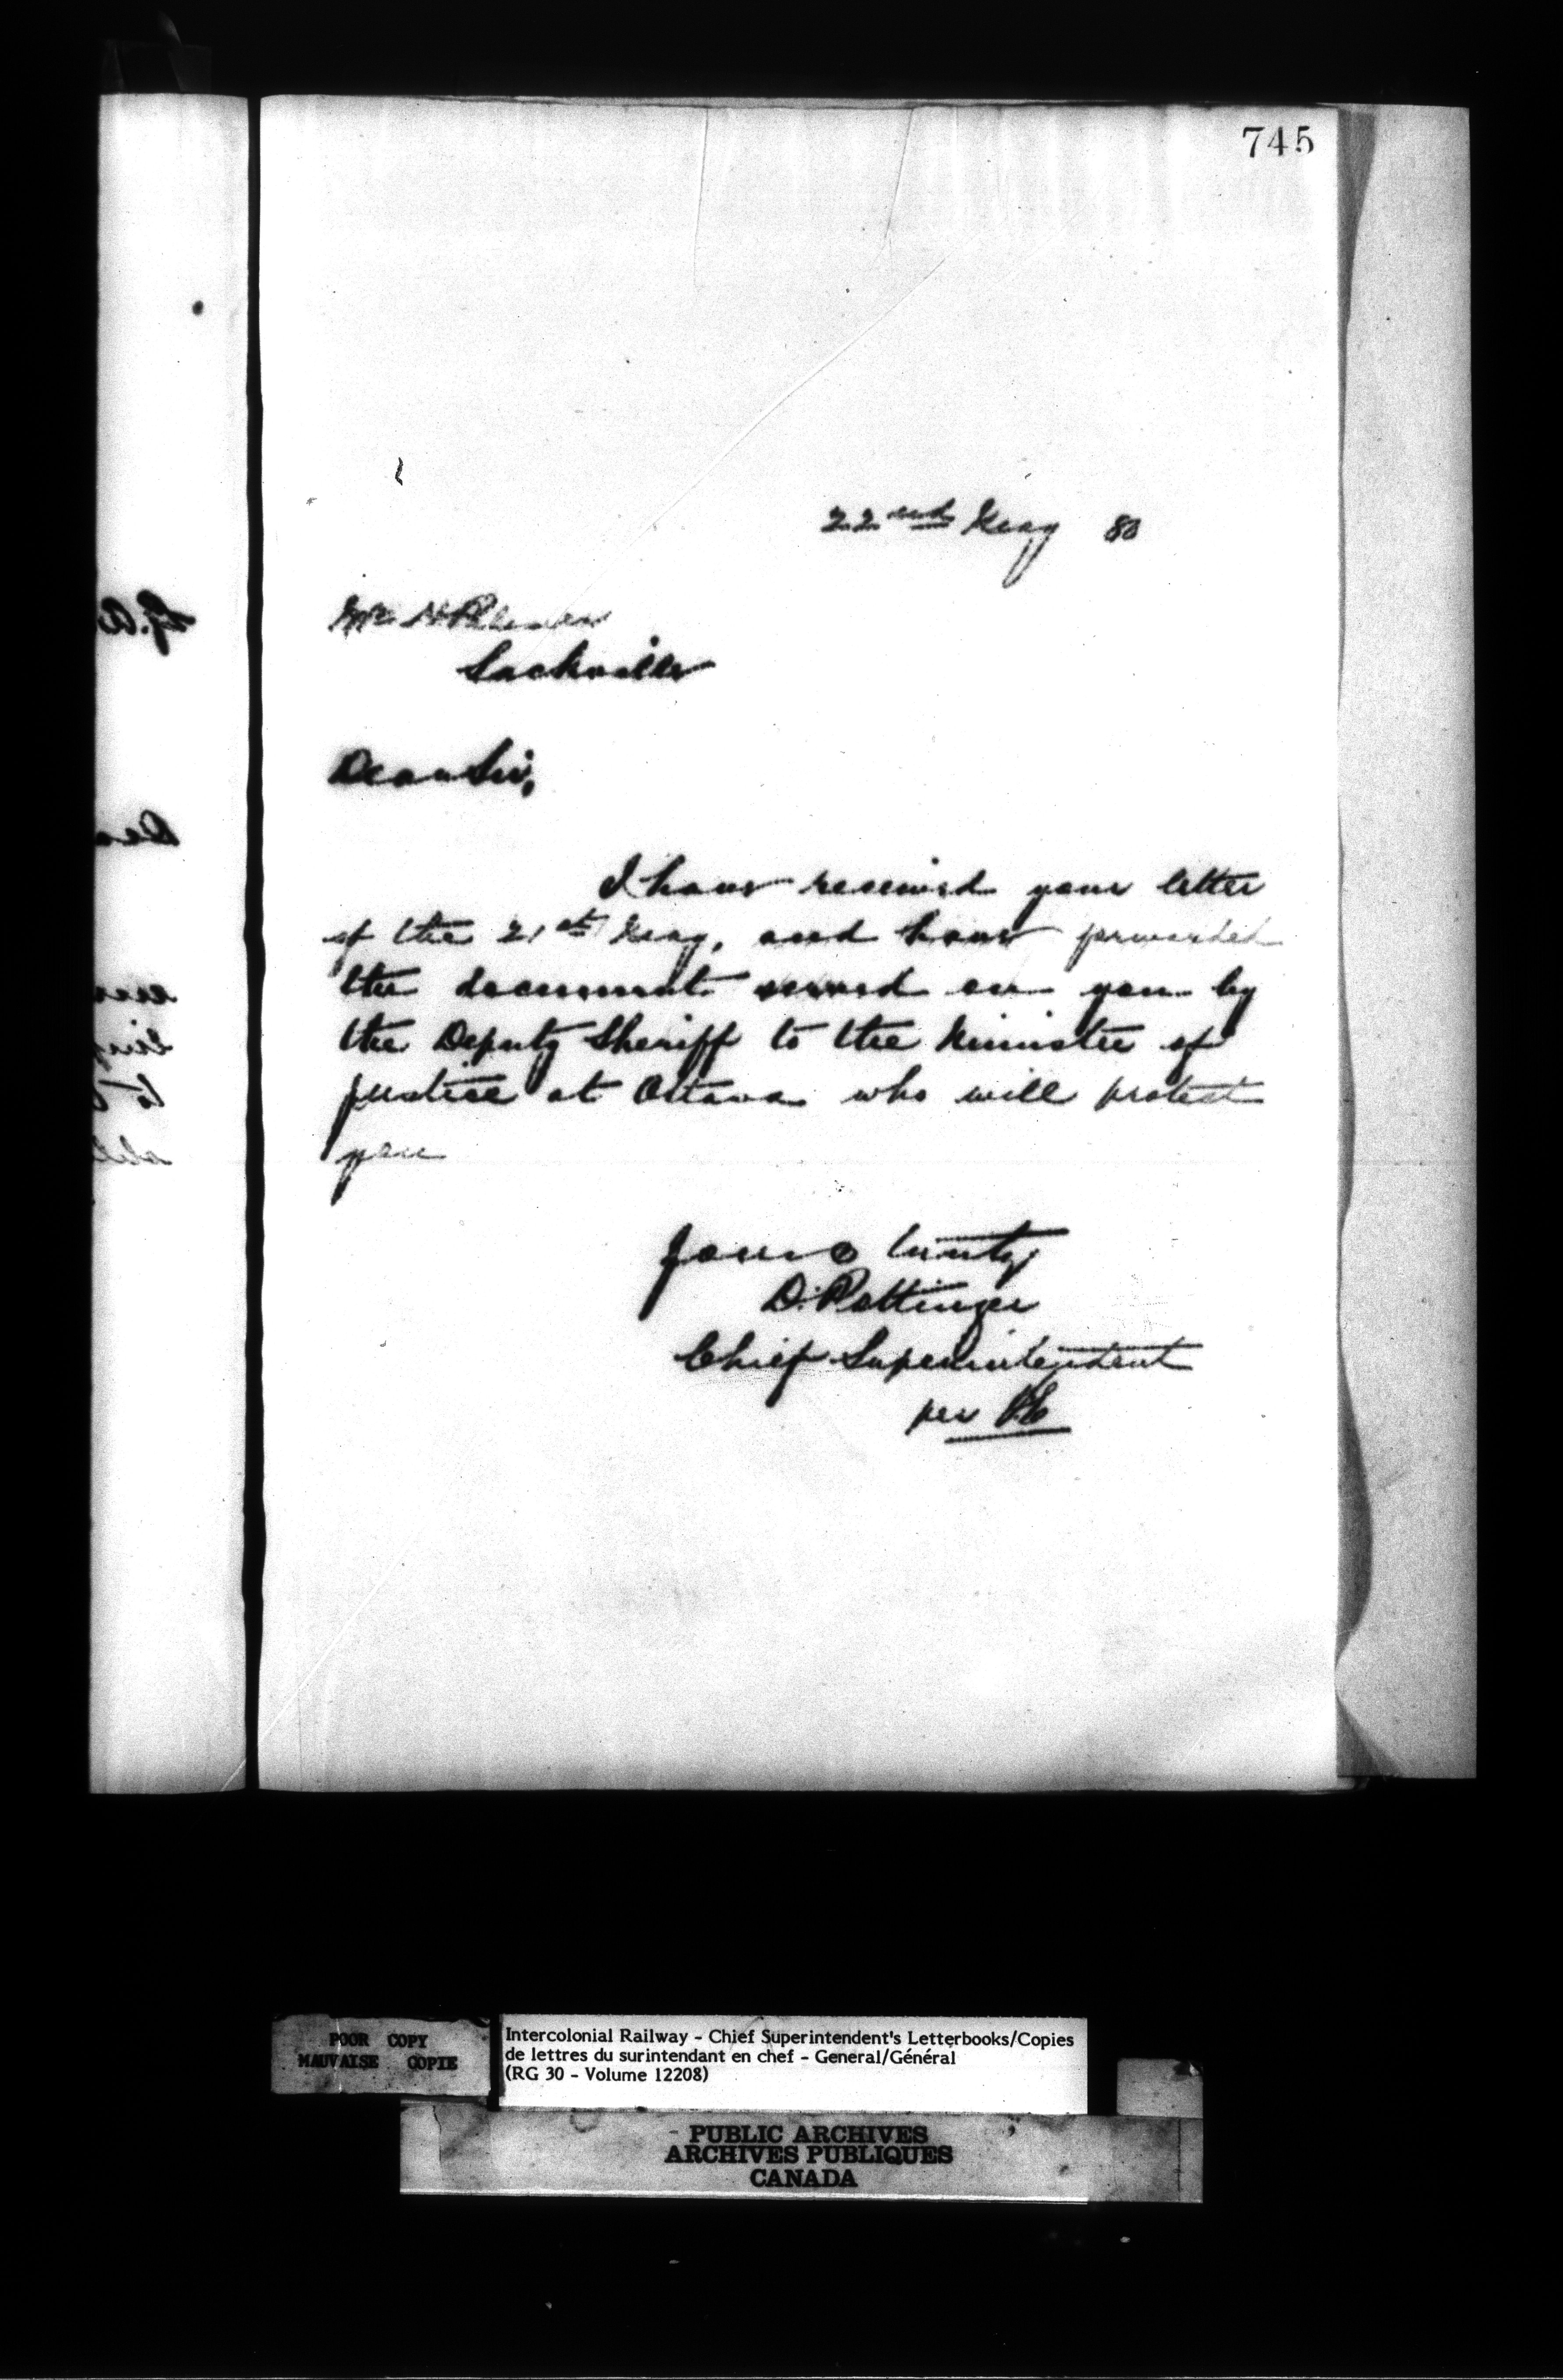 745
22nd May 80
Mr
Sackville
Dear Sir,
I have received your letter
of the 21st May, and have forwarded
the document served on you by
the Deputy Sheriff to the Minister of
Justice at Ottawa who will protect
you
Yours truly,
D. Pottinger
Chief Superintendent
per
POOR COPY
MAUVAISE COPIE
Intercolonial Railway - Chief Superintendent's Letterbooks/Copies
de lettres du surintendant en chef - General/Général
(RG 30 - Volume 12208)
PUBLIC ARCHIVES
ARCHIVES PUBLIQUES
CANADA